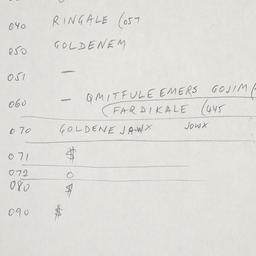 040 RINGALE (057
050 GOLDENEM
051 —
060 — QMITFULE EMERS GOJIM
(FARDIKALE (445
070 GOLDENE JAWX JOWX
071 $
072 0
080 $
090 $